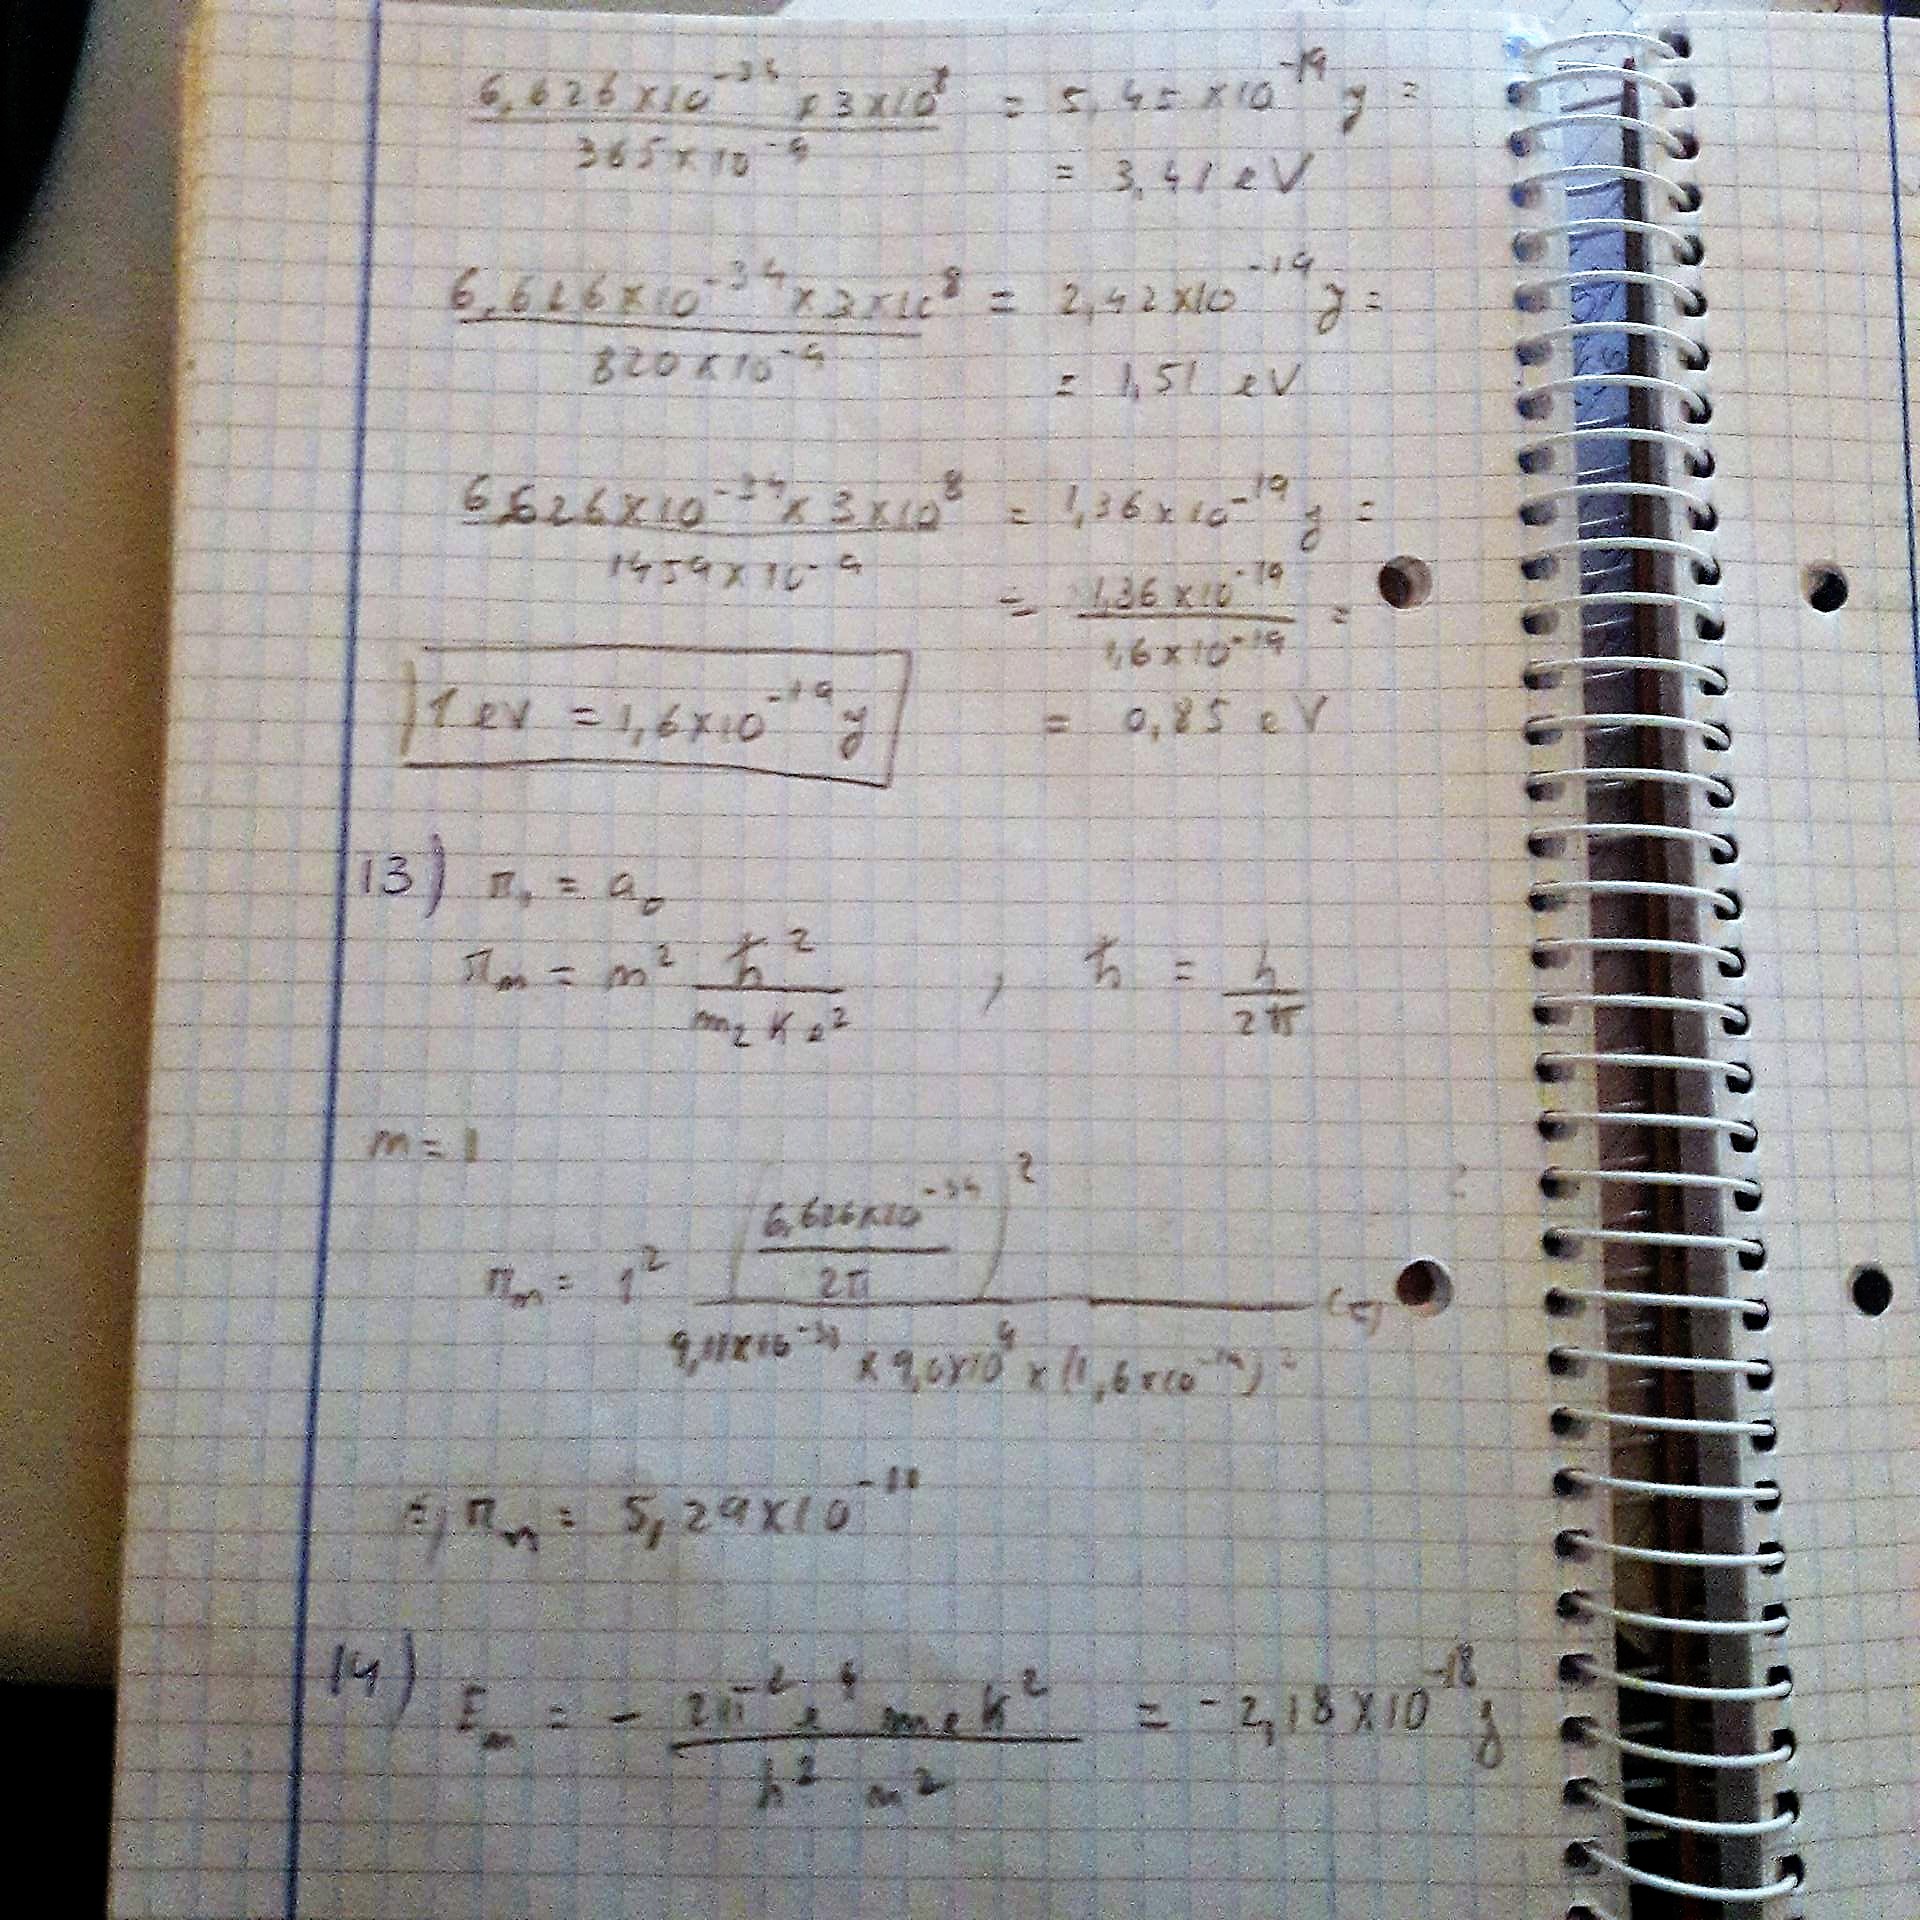 6,626×10^-34 × 3×10^8 / 365×10^-9 = 5,45×10^-19 J =
= 3,41 eV
6,626×10^-34 × 3×10^8 / 820×10^-9 = 2,42×10^-19 J =
= 1,51 eV
6,626×10^-34 × 3×10^8 / 1459×10^-9 = 1,36×10^-19 J =
= 1,36×10^-19 / 1,6×10^-19 =
1 eV = 1,6×10^-19 J
= 0,85 eV
13) r₁ = a₀
rₙ = n² ħ² / m₂ K e² , ħ = h / 2π
n = 1
rₙ = 1² (6,626×10^-34 / 2π)² / 9,11×10^-31 × 9,0×10^9 × (1,6×10^-19)² (=)
(=) rₙ = 5,29×10^-11
14) Eₙ = - 2π^2 e^4 me K² / h² n² = -2,18×10^-18 J